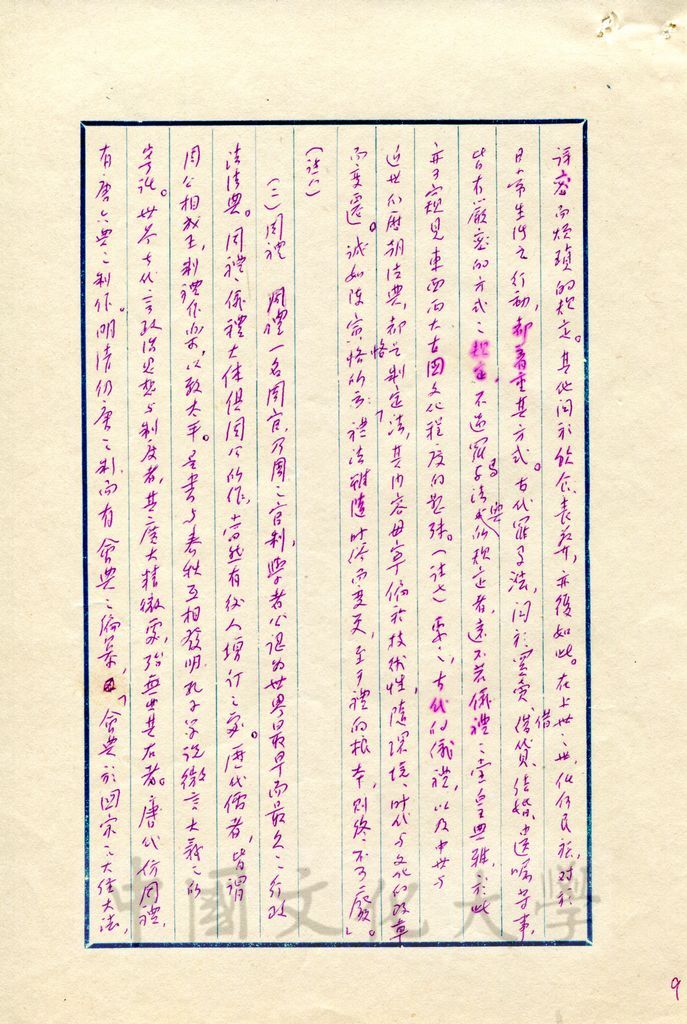 詳密而煩瑣的規定。其他關於飲食、喪葬，亦復如此。在上世之世，任何民族，對於
日常生活之行動，都着重其方式。古代羅馬法，關於買賣、借貸、結婚、遺囑等事，
皆有嚴密的方式之規定，不過羅馬法式的規定者，遠不若儀禮之堂皇典雅，於此
亦可窺見東西兩大古國文化程度的懸殊。（註七）要之，古代的儀禮，以及中世與
近世的歷朝法典，都是制定法，其內容毋寧偏於技術性，隨環境、時代與文化的改革
而變遷。誠如陳寅恪所云「禮法雖隨時俗而變更，至於禮的根本，則終不可廢」。
（註八）
（三）周禮 周禮一名周官，乃周之官制，學者公認為世界最早而最久之行政
法法典。周禮、儀禮大体俱周公所作，當然有後人增訂之處。歷代儒者，皆謂
周公相成王，制禮作樂，以致太平。是書與春秋互相發明，孔子學說微言大義之所
寄託。世界古代言政治思想與制度者，其廣大精微處，殆無出其右者。唐代仿周禮，
有唐六典之制作。明清仍唐之制，而有會典之編纂，「會典於國家之大經大法，
9
中國文化大學